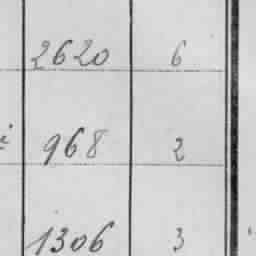 2620 6
968 2
1306 3